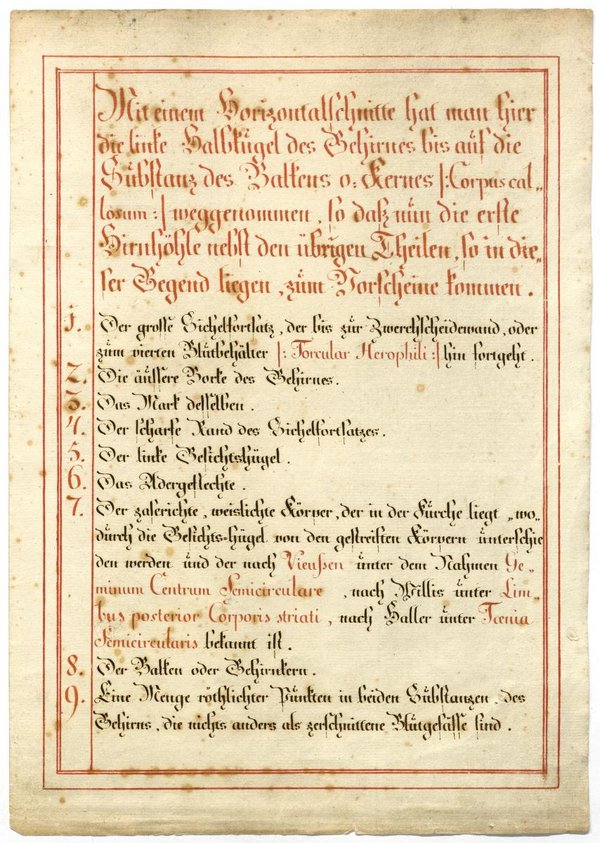 Mit einem Horizontalschnitte hat man hier
die linke Halbkugel des Gehirnes bis auf die
Substanz des Balkens o: Kernes |: Corpus cal„
losum :| weggenommen, so daß nun die erste
Hirnhöhle nebst den übrigen Theilen, so in die„
ser Gegend liegen, zum Vorscheine kommen.
1. Der grosse Sichelfortsatz, der bis zur Zwerchscheidewand, oder
zum vierten Blutbehälter |: Torcular Herophili :| hin fortgeht.
2. Die äussere Borke des Gehirnes.
3. Das Mark desselben.
4. Der scharfe Rand des Sichelfortsatzes.
5. Der linke Gesichtshügel.
6. Das Adergeflechte.
7. Der zaserichte, weislichte Körper, der in der Furche liegt „wo„
durch die Gesichts-hügel von den gestreiften Körpern unterschie
den werden und der nach Vieußen unter dem Nahmen Ge„
minum Centrum Semicirculare, nach Willis unter Lim„
bus posterior Corporis striati, nach Haller unter Tænia
Semicircularis bekannt ist.
8. Der Balken oder Gehirnkern.
9. Eine Menge röthlichter Punkten in beiden Substanzen des
Gehirns, die nichts anders als zerschnittene Blutgefässe sind.